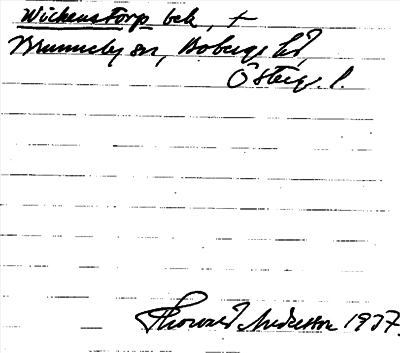 Wickenstorp beb, +
Brunneby sn, Bobergs hd,
Österg. l.
Thorvald Andersson 1937.